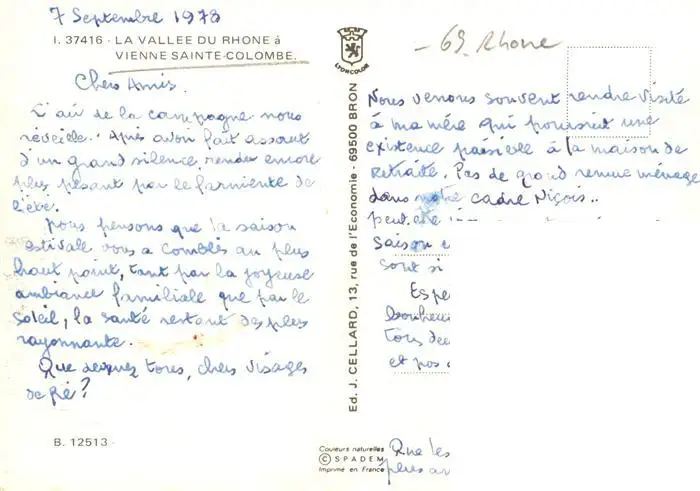 7 Septembre 1978
I. 37416 - LA VALLEE DU RHONE à
VIENNE SAINTE-COLOMBE.
Chers Amis.
L'air de la campagne nous
réveille. Après avoir fait assaut
d'un grand silence rendu encore
plus pesant par le farniente de
l'été.
Nous pensons que la saison
estivale vous a comblés au plus
haut point, tant par la joyeuse
ambiance familiale que par le
soleil, la santé restant des plus
rayonnante.
Que devenez tous, chers visages
de Ré?
B. 12513 -
LYONCOLOR
Ed. J. CELLARD, 13, rue de l'Economie - 69500 BRON
Couleurs naturelles
© SPADEM
Imprimé en France
- 69. Rhone
Nous venons souvent rendre visite
à ma mère qui poursuit une
existence paisible à la maison de
Retraite. Pas de grand remue ménage
dans notre cadre Niçois..
peut.etre
Saison
sont si
Espe
tous
et pos
Que les
plus